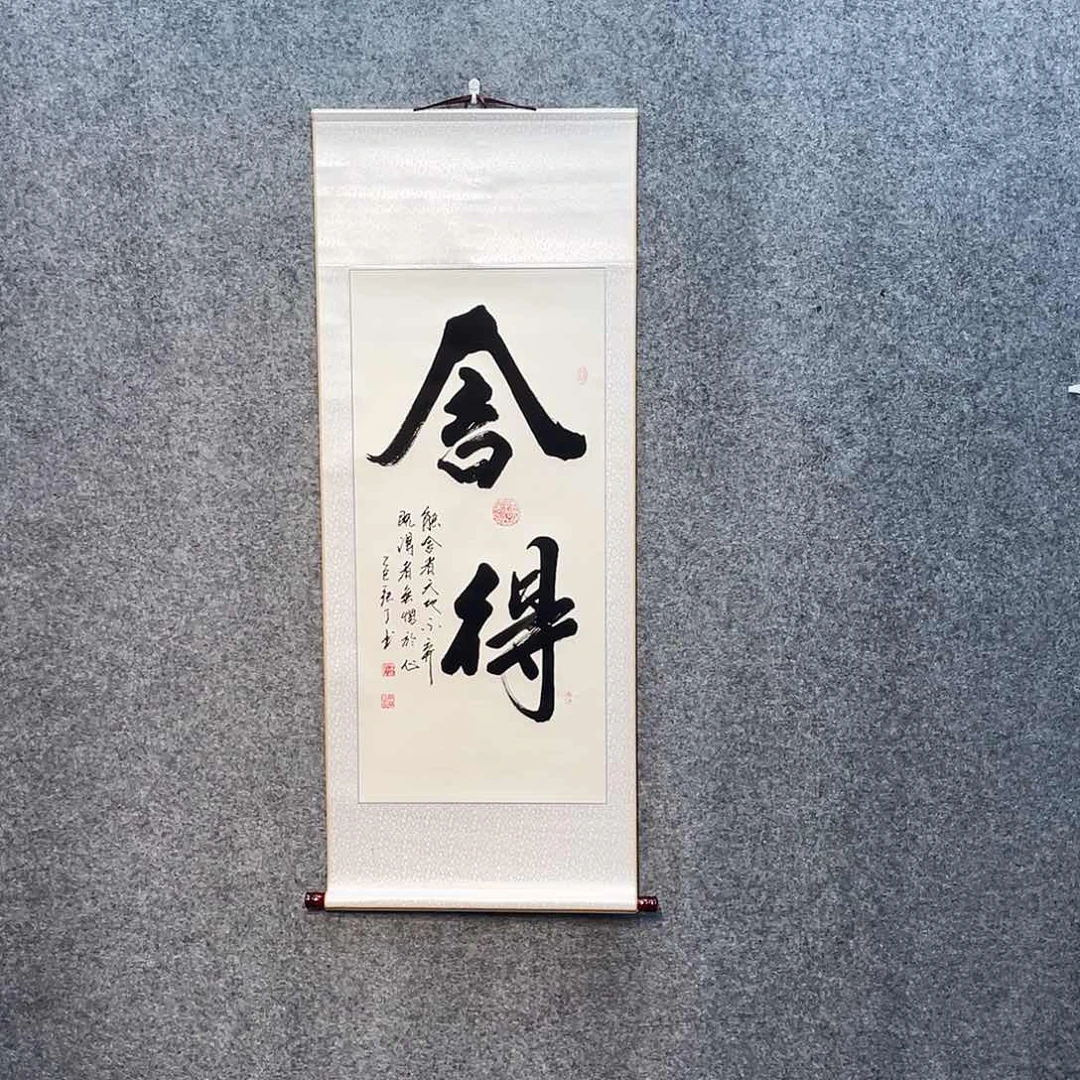 舍
得
能舍者天地不弃
既得者無愧於心
乙巳
书